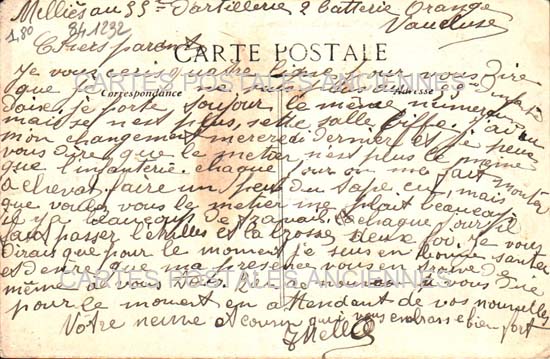 Melliès au 55e d'artillerie 2 Batterie Orange
Vaucluse
1,80 84 1292
Chers parents
CARTE POSTALE
Je vous écris quatre lignes pour vous dire
que je ne suis plus au 55 d'infanterie
Correspondance Adresse
je porte toujours le même numéro
mais se n'est plus, sette salle biffe. j'ai eu
mon changement mercredi dernier et je peux
vous dire que le metier n'est plus le même
que l'infanterie. chaque jour on me fait monter
a cheval. faire un peu du tape cu, mais
que voulez vous le metier me plait beaucoup
il y a beaucoup de travail. chaque jour il
faut passer l'étrilles et la brosse deux foi. Je vous
dirais que pour le moment je suis en bonne santer
et desire que ma présente vous trouve de
même a vous tous. Rien de nouveau a vous dire
pour le moment en attendant de vos nouvelles
Votre neveu et cousin qui vous embrasse bien fort
Melliès
CARTES POSTALES ANCIENNES
CARTES POSTALES ANCIENNES